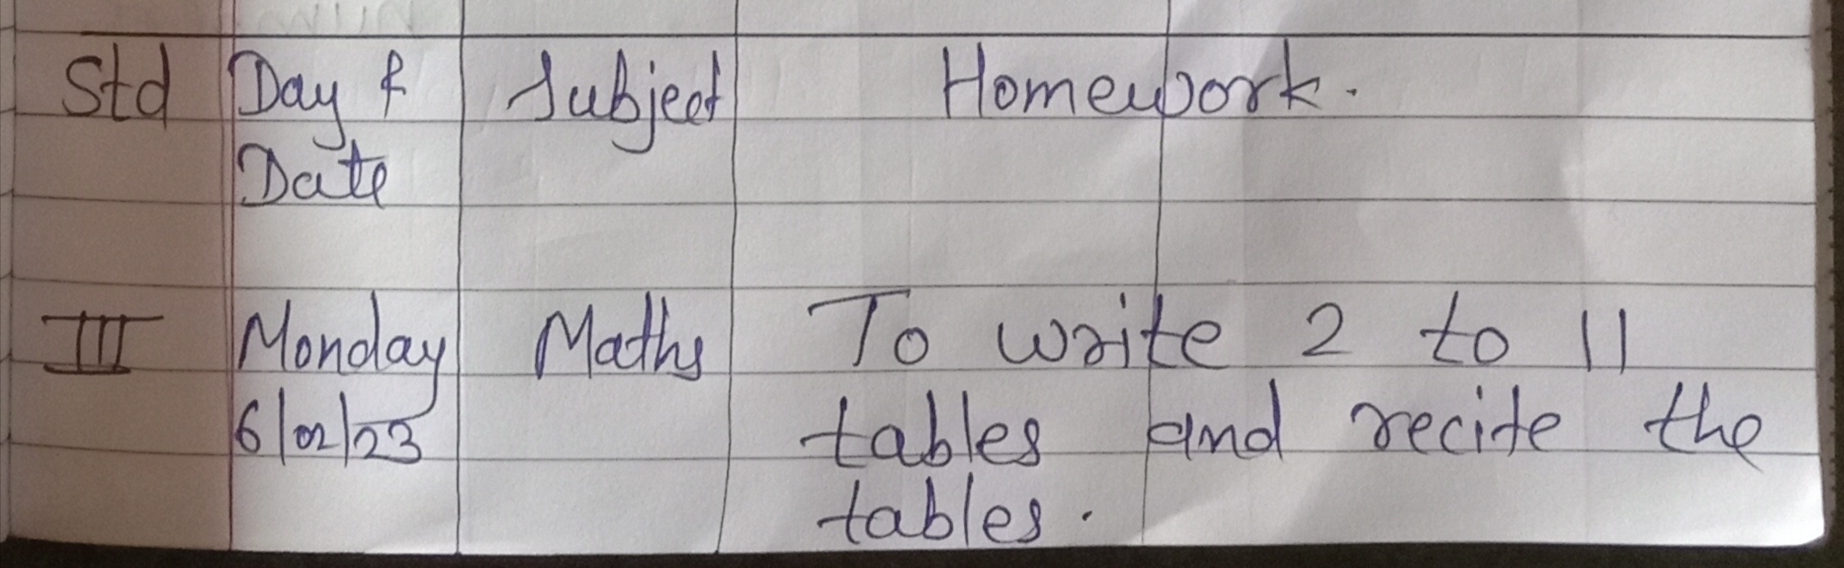 Std Day & Subject Homework.
Date
III Monday Maths To write 2 to 11
6/02/23 tables and recite the
tables.